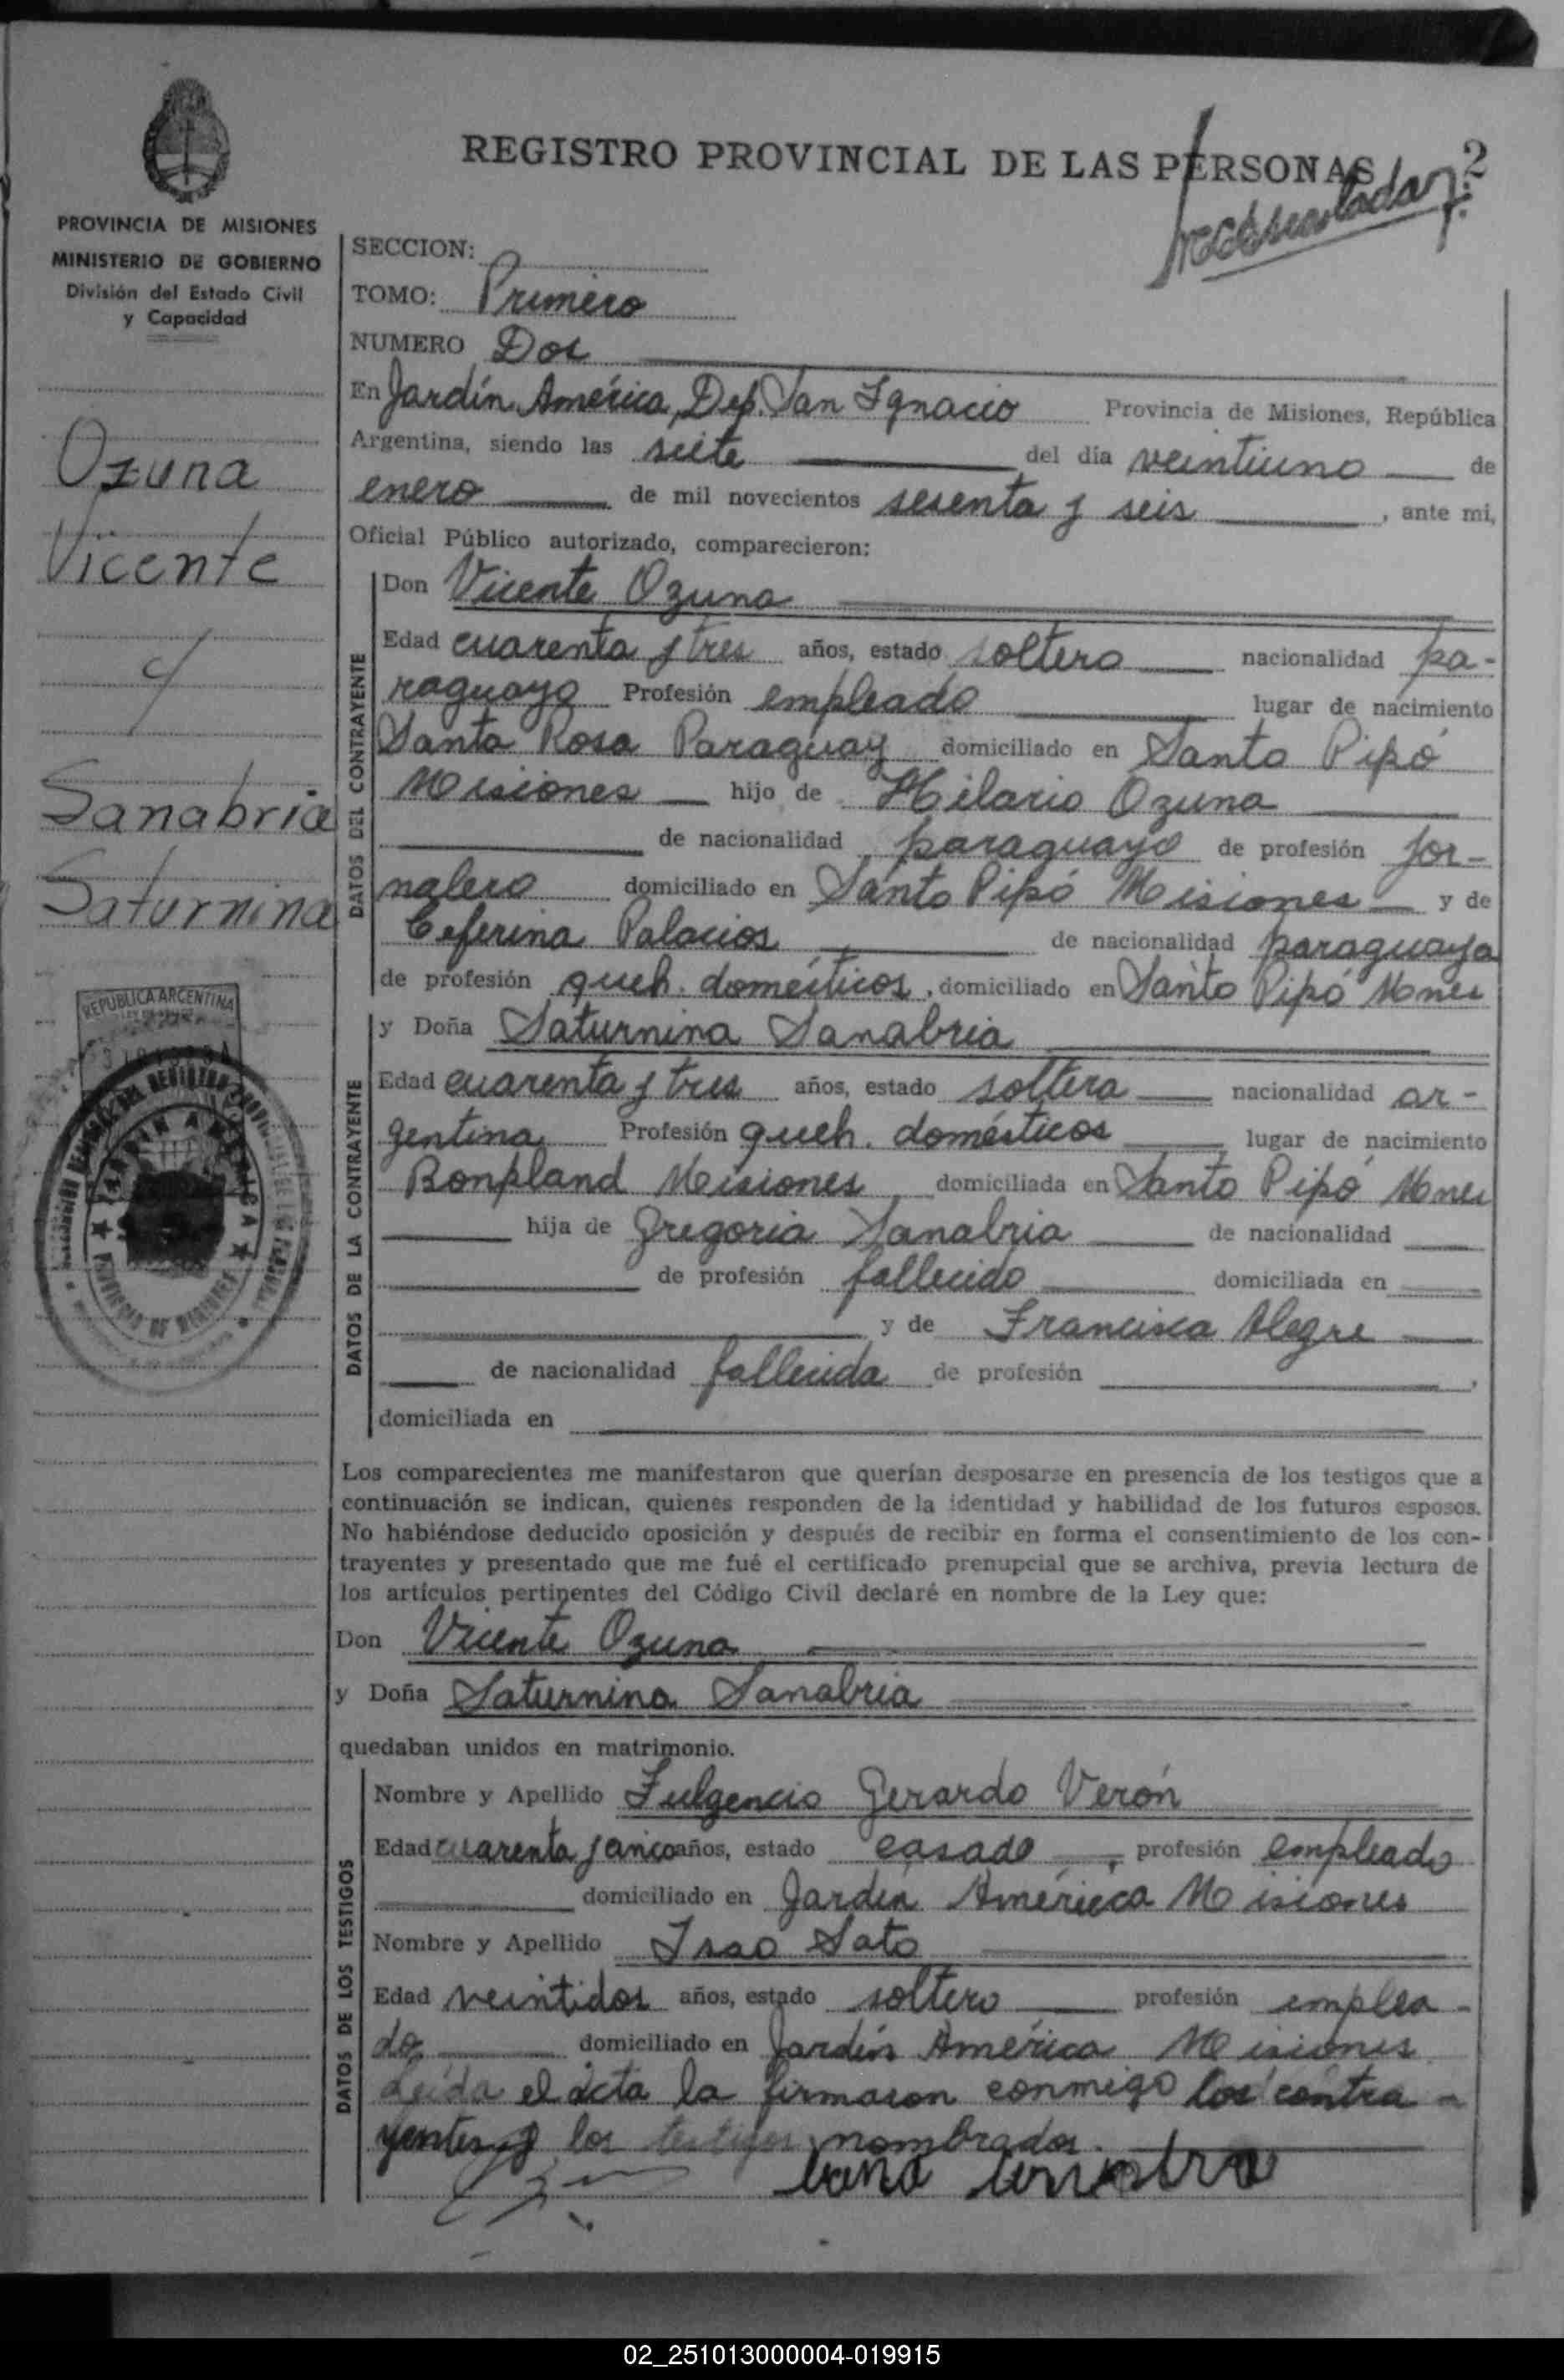 REGISTRO PROVINCIAL DE LAS PERSONAS
2
PROVINCIA DE MISIONES
MINISTERIO DE GOBIERNO
División del Estado Civil
y Capacidad
Ozuna
Vicente
y
Sanabria
Saturnina
REPUBLICA ARGENTINA
SECCION:
TOMO: Primero
NUMERO Dos
En Jardín América, Dep. San Ignacio Provincia de Misiones, República
Argentina, siendo las siete del día veintiuno de
enero de mil novecientos sesenta y seis, ante mi,
Oficial Público autorizado, comparecieron:
DATOS DEL CONTRAYENTE
Don Vicente Ozuna
Edad cuarenta y tres años, estado soltero nacionalidad pa-
raguayo Profesión empleado lugar de nacimiento
Santa Rosa Paraguay domiciliado en Santo Pipó
Misiones hijo de Hilario Ozuna
de nacionalidad paraguayo de profesión jor-
nalero domiciliado en Santo Pipó Misiones y de
Ceferina Palacios de nacionalidad paraguaya
de profesión queh. domésticos, domiciliado en Santo Pipó Mnes
DATOS DE LA CONTRAYENTE
y Doña Saturnina Sanabria
Edad cuarenta y tres años, estado soltera nacionalidad ar-
gentina Profesión queh. domésticos lugar de nacimiento
Bonpland Misiones domiciliada en Santo Pipó Mnes
hija de Gregorio Sanabria de nacionalidad
de profesión fallecido domiciliada en
y de Francisca Alegre
de nacionalidad fallecida de profesión ,
domiciliada en
Los comparecientes me manifestaron que querían desposarse en presencia de los testigos que a
continuación se indican, quienes responden de la identidad y habilidad de los futuros esposos.
No habiéndose deducido oposición y después de recibir en forma el consentimiento de los con-
trayentes y presentado que me fué el certificado prenupcial que se archiva, previa lectura de
los artículos pertinentes del Código Civil declaré en nombre de la Ley que:
Don Vicente Ozuna
y Doña Saturnina Sanabria
quedaban unidos en matrimonio.
DATOS DE LOS TESTIGOS
Nombre y Apellido Fulgencio Gerardo Verón
Edad cuarenta y cinco años, estado casado, profesión empleado
domiciliado en Jardín América Misiones
Nombre y Apellido Isao Sato
Edad veintidos años, estado soltero profesión emplea-
do domiciliado en Jardín América Misiones
Leída el acta la firmaron conmigo los contra-
yentes y los testigos nombrados.
02_251013000004-019915